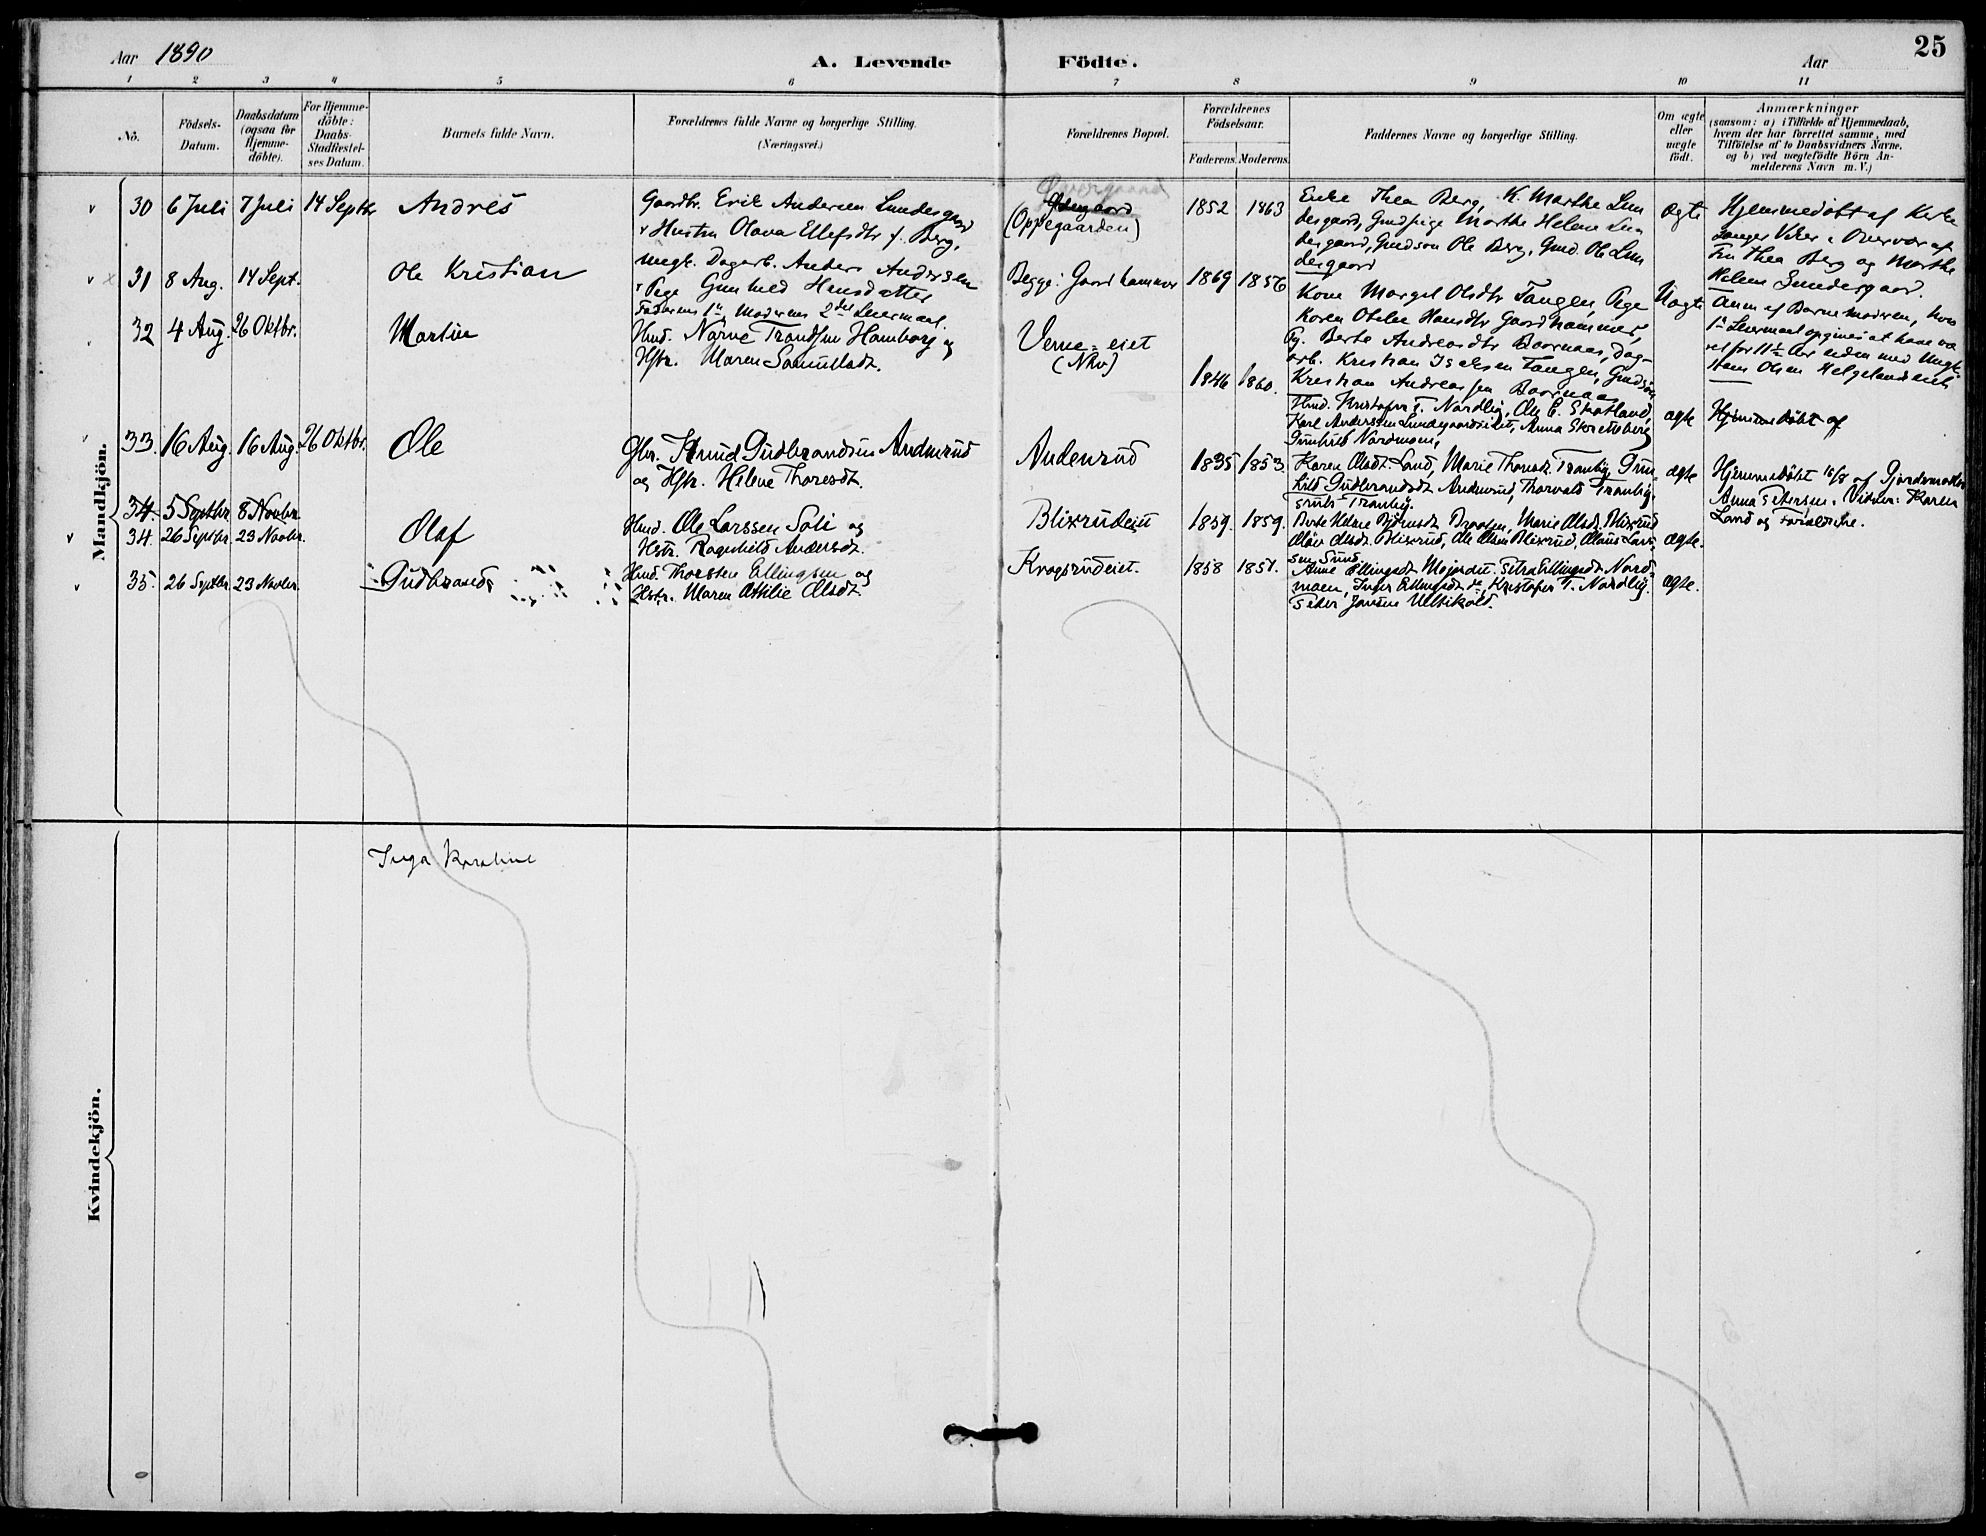 Aar 1890
A. Levende Födte.
Aar
25
1 2 3 4 5 6 7 8 9 10 11
No.
Födsels-Datum.
Daabsdatum (ogsaa for Hjemme-döbte).
For Hjemme-döbte: Daabs-Stadfæstel-ses Datum.
Barnets fulde Navn.
Forældrenes fulde Navne og borgerlige Stilling.
(Næringsvei.)
Forældrenes Bopæl.
Forældrenes Födselsaar.
Faderens. Moderens.
Faddernes Navne og borgerlige Stilling.
Om ægte eller uægte födt.
Anmærkninger
(saasom: a) i Tilfælde af Hjemmedaab,
hvem der har forrettet samme, med
Tilföielse af to Daabsvidners Navne.
og b) ved uægtefödte Börn An-
melderens Navn m. V.)
Mandkjön.
30 6 Juli 7 Juli 14 Septbr Andres
Gaardbr. Erik Andersen Lundesgaard
& Hustru Olava Ellefsdtr f. Berg.
(Oppegaarden)
1852 1863
Enke Thea Berg, K. Marthe Lun
desgaard, Gmdpige Marthe Helene Lun
desgaard, Gmdsøn Ole Berg, Gmd. Ole Lun
desgaard
ægte
Hjemmedöbt af Kirke
sanger Viker i Overvær af
Fru Thea Berg og Marthe
Helene Lundesgaard.
31 8 Aug. 14 Sept. Ole Kristian
Ungk. Dagarb. Anders Andersen
& Pige Gunhild Hansdatter
Faderens 1ste Moderens 2det Leiermaal.
Begge: Gaardhammer
1869 1856
Kone Margit Olsdtr Tangen, Pige
Karen Otelie Hansdtr Gaardhammer,
Pg. Berte Andreasdtr Baarnaas, Dag-
arb. Kristian Isaksen Tangen, Gmdsøn
Kristian Andreassen Baarnaas
Uægte
Anm af Barnemoderen, hvis
1ste Leiermaal opgives at have væ
ret for 11½ Aar siden med Ungk.
Hans Olsen Helgelandseiet
32 4 Aug. 26 Oktbr. Martin
Husd. Narve Trondsen Hamborg og
Hstr. Maren Samuelsdt.
Verne-eiet
(Nkv)
1846 1860.
Husd. Kristofer T. Nordlie, Ole E. Skotland,
Karl Andersen Lundesgaardseiet, Anna Skretteberg
Gunhild Nordmoen,
ægte
Hjemmedöbt af
33. 16 Aug. 16 Aug. 26 Oktbr. Ole
Gbr. Knud Gudbrandsen Andenrud
og Hstr. Helene Thoresdt.
Andenrud
1835 1853.
Karen Olsdt. Land, Marie Thorsdt. Tranby, Gun
hild Gudbrandsdt Andenrud, Thorvald Tranby,
Truls Tranby.
ægte
Hjemmedöbt 16/8 af Gjordemoder
Anna Petersen. Vidner: Karen
Land og Forældrene.
34. 5 Septbr 8 Novbr
34. 26 Septbr. 23 Novbr. Olaf
Husd. Ole Larssen Soli og
Hstr. Ragnhild Andersdt.
Blixrudeiet
1859. 1859.
Berte Helene Björnsdt Braaten, Marie Olsdt. Blixrud
Olea Olsdt. Blixrud, Ole Olsen Blixrud, Olaus Lars
sen Sund.
ægte.
35. 26 Septbr. 23 Novbr. Gudbrand
Husd. Thorsten Ellingsen og
Hstr. Maren Othilie Olsdt.
Kragsrudeiet.
1858 1857.
Anne Ellingsdt. Mojordet, Petra Ellingsdt. Nord
moen, Inger Ellingsdt do, Kristofer T. Nordlie.
Peder Jonsen Ulbikold.
ægte.
Kvindekjön.
Inga Karoline